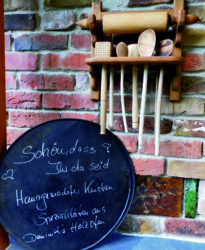 Schön, dass
Ihr da seid
Hausgemachter Kuchen
Spezialitäten aus
Holzofen